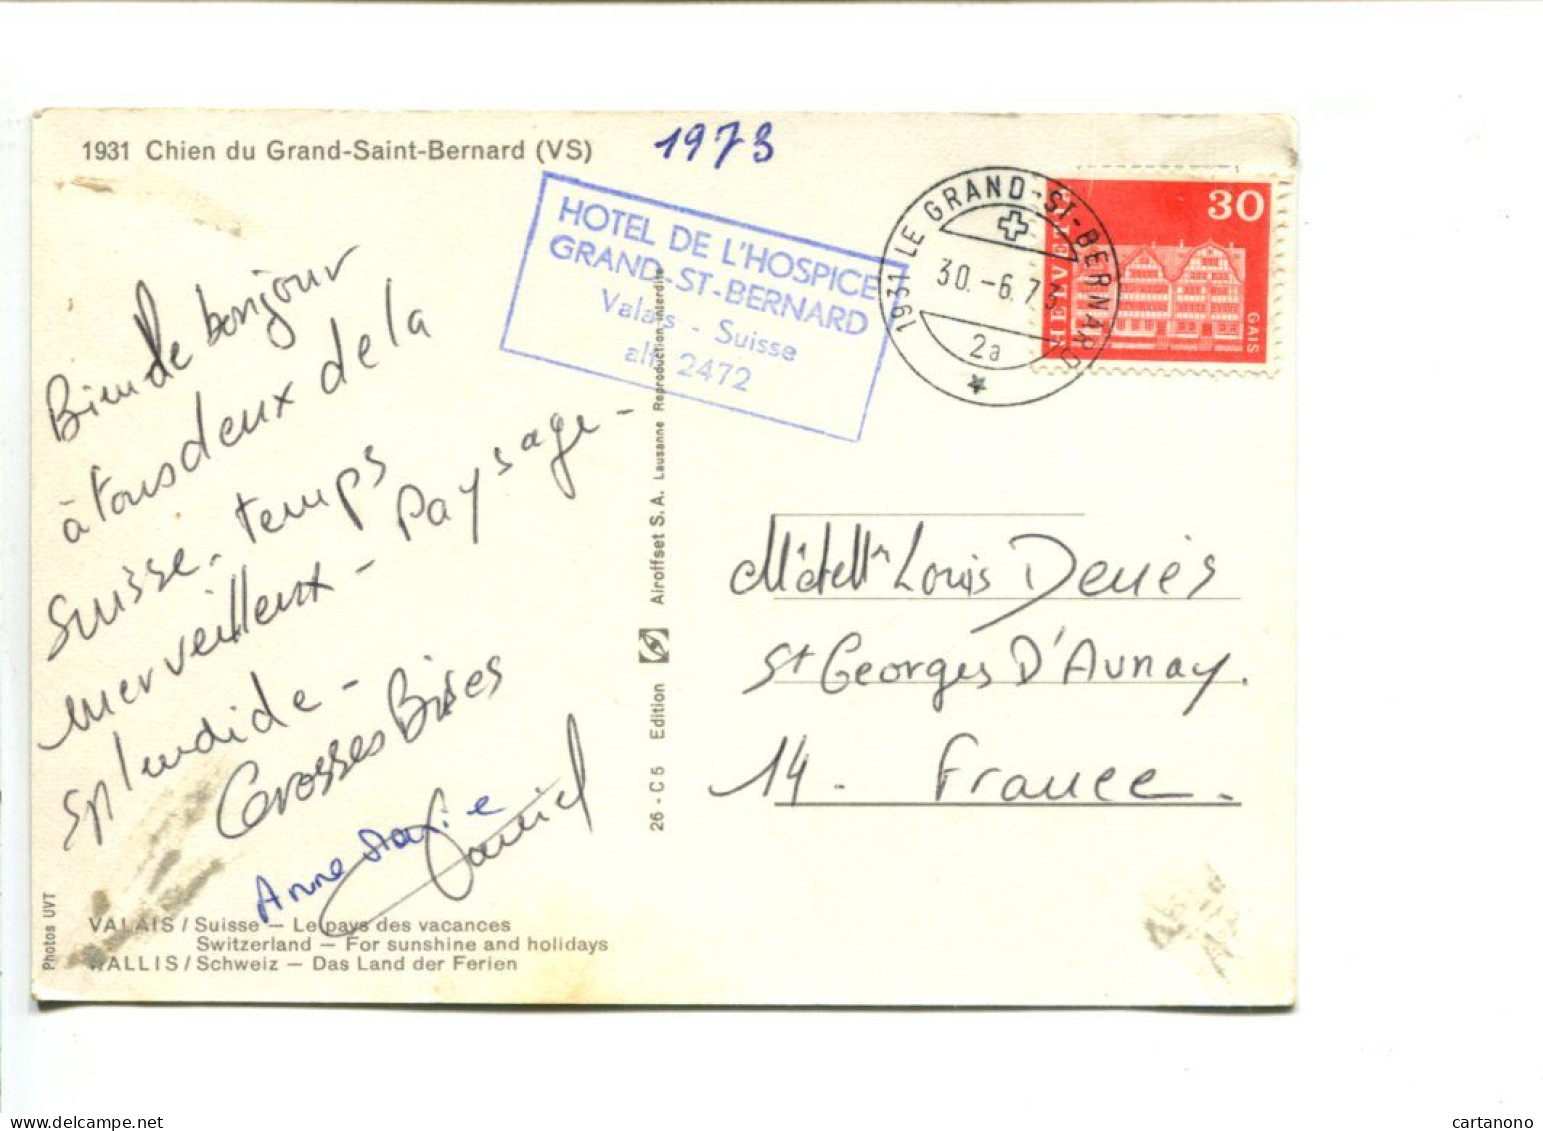 1931 Chien du Grand-Saint-Bernard (VS)
1973
HOTEL DE L'HOSPICE
GRAND-ST-BERNARD
Valais - Suisse
alt. 2472
1931 LE GRAND-ST-BERNARD
30.-6.73
2a
HELVETIA
30
GAIS
Bien le bonjour
à tous deux de la
Suisse. temps
merveilleux - Paysage -
splendide -
Grosses Bises
Anne Marie
Daniel
Louis Denès
St Georges D'Aunay.
14. France.
26 - C 5 Edition Airoffset S. A. Lausanne Reproduction interdite
Photos UVT
VALAIS / Suisse — Le pays des vacances
Switzerland — For sunshine and holidays
WALLIS / Schweiz — Das Land der Ferien
cartanono